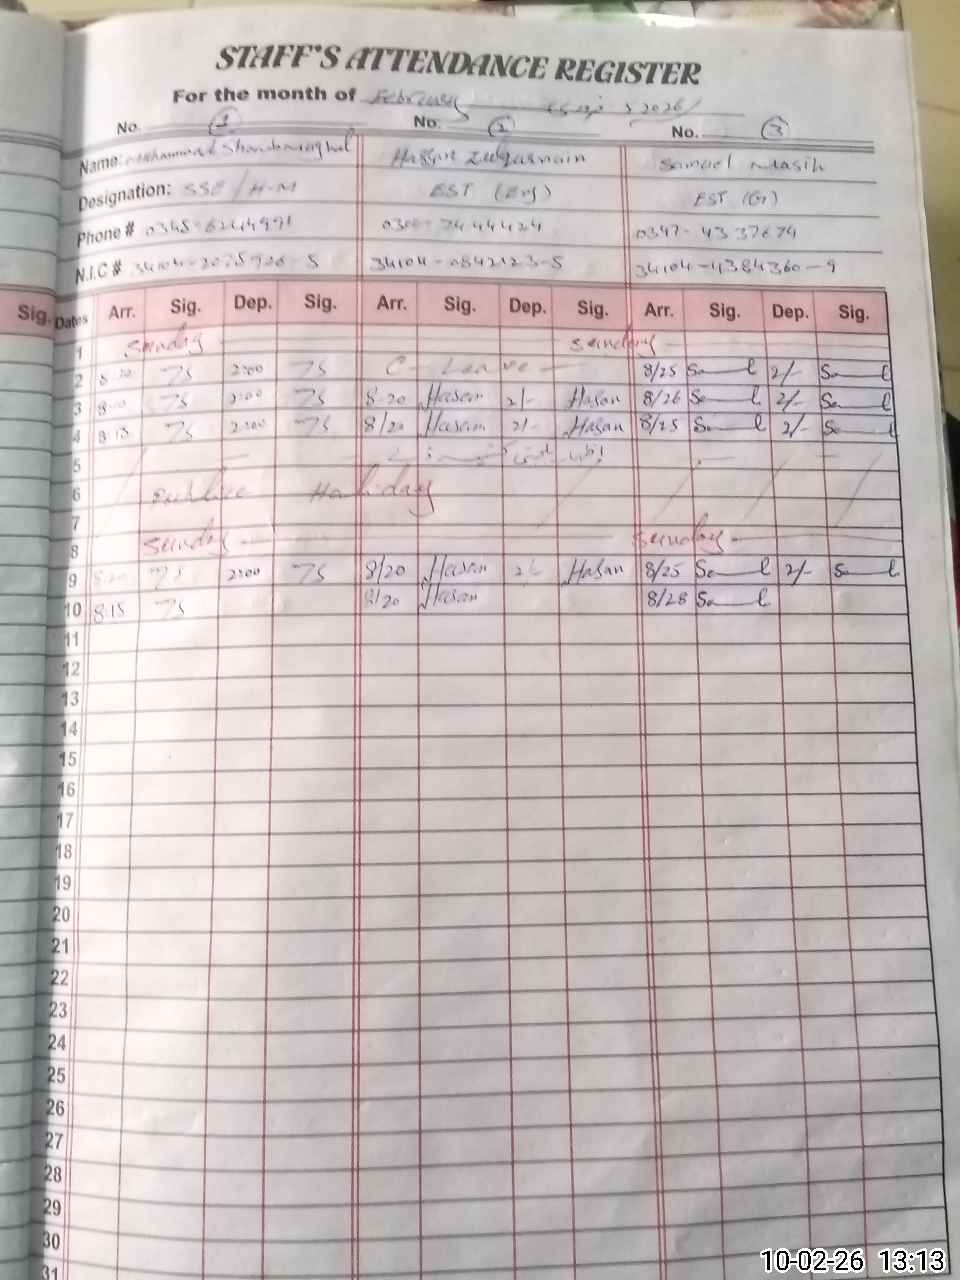 STAFF'S ATTENDANCE REGISTER
For the month of February 2026/
No. 1 No. 2 No. 3
Name: Muhammad Hasan Zulqarnain Samuel Masih
Designation: SSE/H-M EST (Eng) EST (G)
Phone # 0300-7444424 0347-4337679
N.I.C # 34104-0842123-5 34104-4384360-9
Sig. Dates Arr. Sig. Dep. Sig. Arr. Sig. Dep. Sig. Arr. Sig. Dep. Sig.
1 Sunday Sunday
2 8:20 TS 2:00 TS C-Leave 8/25 Sa l 2/- Sa l
3 TS 2:00 TS 8:20 Hasan 2/- Hasan 8/26 Sa l 2/- Sa l
4 8:15 TS 2:00 TS 8/20 Hasan 2/- Hasan 8/25 Sa l 2/- Sa l
5
6 Public Holiday
7
8 Sunday Sunday
9 8:20 TS 2:00 TS 8/20 Hasan Hasan 8/25 Sa l 2/- Sa l
10 8:15 TS 8/20 Hasan 8/28 Sa l
11
12
13
14
15
16
17
18
19
20
21
22
23
24
25
26
27
28
29
30
31
10-02-26 13:13